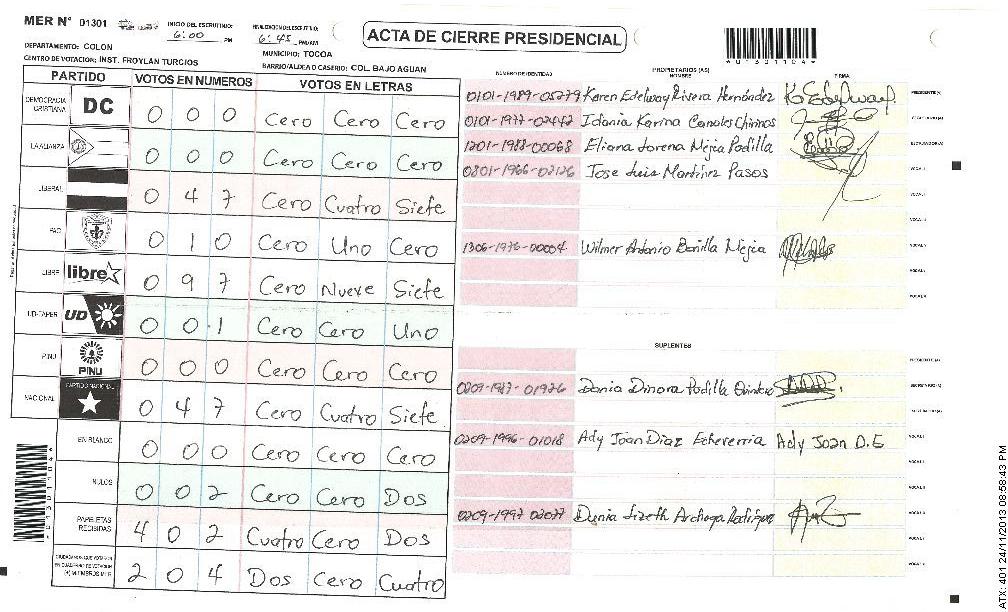 MER Nº 01301
INICIO DEL ESCRUTINIO: 6:00 PM
FINALIZACION DEL ESCRUTINIO: 6:45 PM/AM
ACTA DE CIERRE PRESIDENCIAL
*01301104*
DEPARTAMENTO: COLON
MUNICIPIO: TOCOA
CENTRO DE VOTACION: INST. FROYLAN TURCIOS
BARRIO/ALDEA O CASERIO: COL. BAJO AGUAN
PARTIDO VOTOS EN NUMEROS VOTOS EN LETRAS
DEMOCRACIA CRISTIANA DC 0 0 0 Cero Cero Cero
LA ALIANZA 0 0 0 Cero Cero Cero
LIBERAL 0 4 7 Cero Cuatro Siete
PAC 0 1 0 Cero Uno Cero
LIBRE libre 0 9 7 Cero Nueve Siete
UD-FAPER UD 0 0 1 Cero Cero Uno
PINU PINU 0 0 0 Cero Cero Cero
NACIONAL PARTIDO NACIONAL 0 4 7 Cero Cuatro Siete
EN BLANCO 0 0 0 Cero Cero Cero
NULOS 0 0 2 Cero Cero Dos
PAPELETAS RECIBIDAS 4 0 2 Cuatro Cero Dos
CIUDADANOS QUE VOTARON EN CUADERNO DE VOTACION (+) MIEMBROS MER 2 0 4 Dos Cero Cuatro
*01301104*
NUMERO DE IDENTIDAD PROPIETARIOS (AS) NOMBRE FIRMA
0101-1989-05279 Karen Edelway Rivera Hernández PRESIDENTE(A)
0101-1977-02442 Idania Karina Canales Chirinos SECRETARIO(A)
1201-1988-00068 Eliana Lorena Mejia Padilla ESCRUTADOR(A)
0801-1966-02126 Jose Luis Martinez Pasos
1306-1976-00004 Wilmer Antonio Bonilla Mejia
SUPLENTES
PRESIDENTE(A)
0209-1987-01926 Dania Dinora Padilla SECRETARIO(A)
0209-1996-01018 Ady Joan Diaz Echeverria Ady Joan D.E
0209-1997-02077 Dunia Lizeth Archaga Rodriguez
ATX: 401 24/11/2013 08:58:43 PM